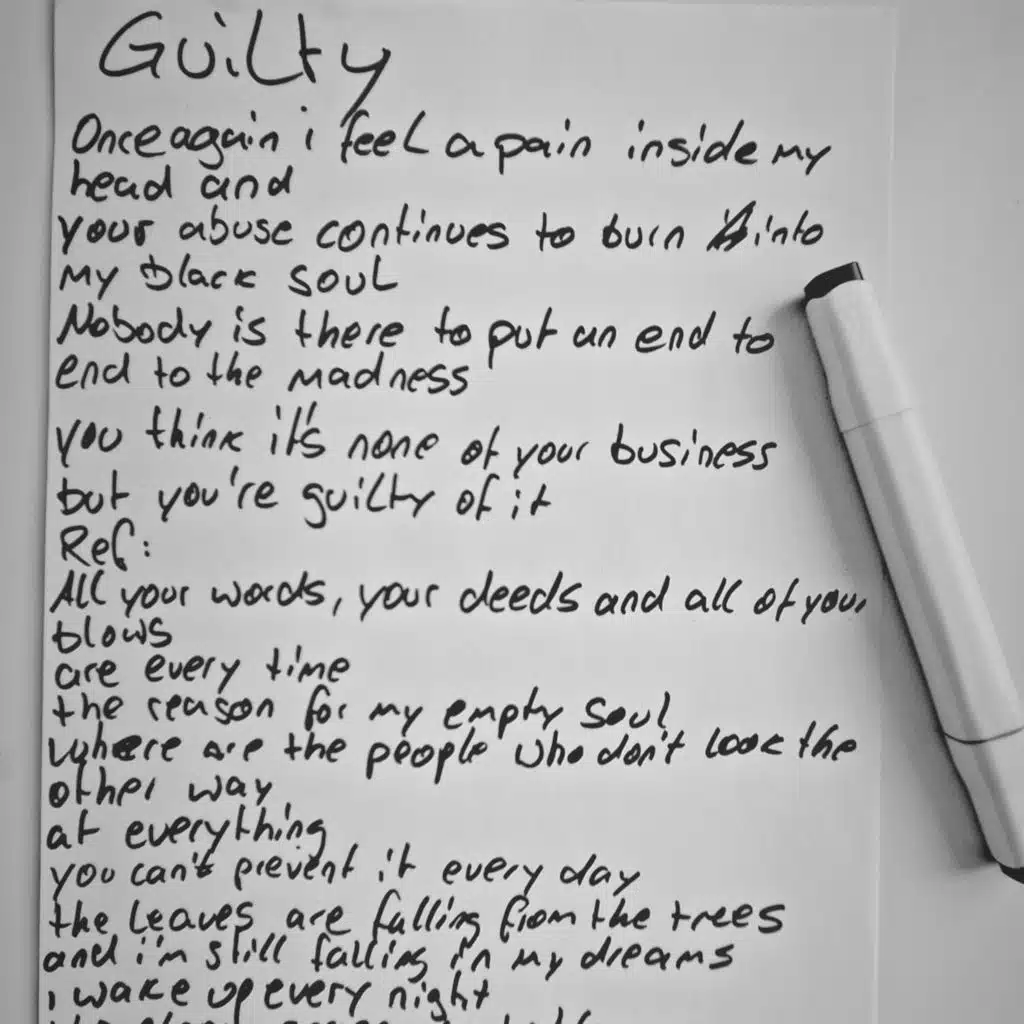 Guilty
Once again i feel a pain inside my
head and
your abuse continues to burn into
my black soul
Nobody is there to put an end to
end to the madness
you think it's none of your business
but you're guilty of it
Ref:
All your words, your deeds and all of your
blows
are every time
the reason for my empty soul
where are the people who don't look the
other way
at everything
you can't prevent it every day
the leaves are falling from the trees
and i'm still falling in my dreams
i wake up every night